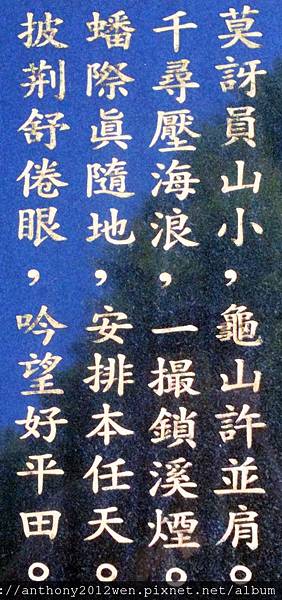 莫訝員山小，龜山許並肩。
千尋壓海浪，一撮鎖溪煙。
蟠際眞隨地，安排本任天。
披荊舒倦眼，吟望好平田。
://anthony2012wen.pixnet.net/album